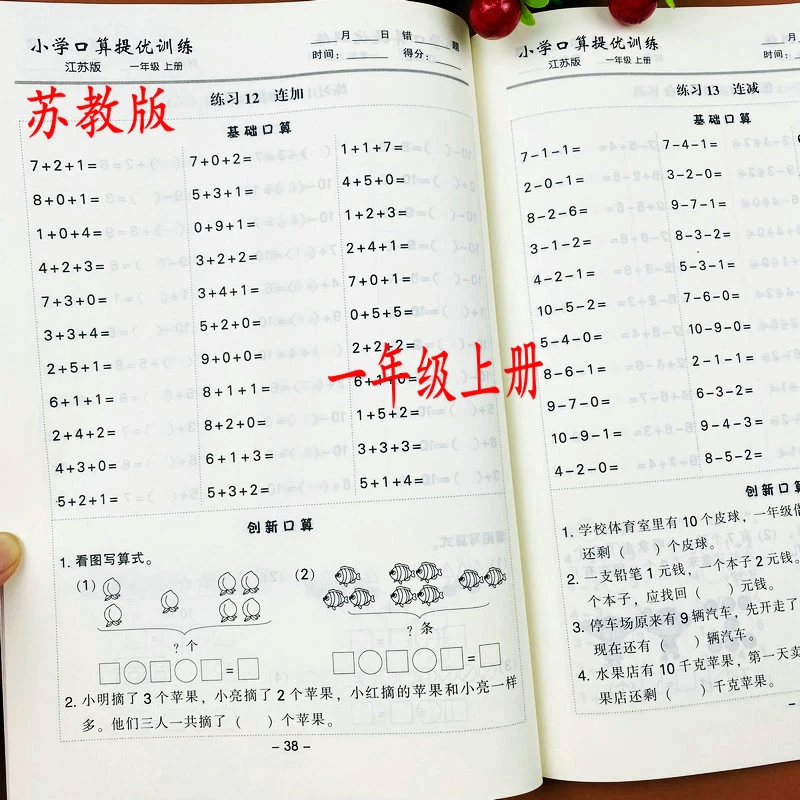 小学口算提优训练
江苏版 一年级 上册
___月___日 错___题
时间：______ 得分：______
练习 12 连加
苏教版
基础口算
7+2+1= 7+0+2= 1+1+7=
8+0+1= 5+3+1= 4+5+0=
1+0+4= 0+9+1= 1+2+3=
4+2+3= 3+2+2= 2+4+1=
7+3+0= 3+4+1= 7+0+1=
3+3+4= 5+2+0= 0+5+5=
2+5+1= 9+0+0= 2+2+2=
6+1+1= 8+1+1= 6+1+0=
2+4+2= 6+2+0= 1+5+2=
4+3+0= 6+1+3= 3+3+3=
5+2+1= 5+3+2= 5+1+4=
一年级上册
创新口算
1. 看图写算式。
(1) (2)
?个 ?条
□○□○□=□ □○□○□=□
2. 小明摘了 3 个苹果，小亮摘了 2 个苹果，小红摘的苹果和小亮一样
多。他们三人一共摘了（ ）个苹果。
- 38 -
小学口算提优训练
江苏版 一年级 上册
___月
时间：
练习 13 连减
基础口算
7-1-1= 7-4-1=
2-0-1= 3-2-0=
8-2-6= 9-7-1=
3-1-2= 8-3-2=
4-2-1= 5-3-1=
10-5-2= 7-6-0=
5-4-0= 10-9-0=
8-6-1= 2-1-1=
9-7-0= 6-3-2=
10-9-1= 9-4-2=
4-2-0= 8-5-2=
创新口
1. 学校体育室里有 10 个皮球，一年级借
还剩（ ）个皮球。
2. 一支铅笔 1 元钱，一个本子 2 元钱。
个本子，应找回（ ）元钱。
3. 停车场原来有 9 辆汽车，先开走了
现在还有（ ）辆汽车。
4. 水果店有 10 千克苹果，第一天卖
果店还剩（ ）千克苹果。